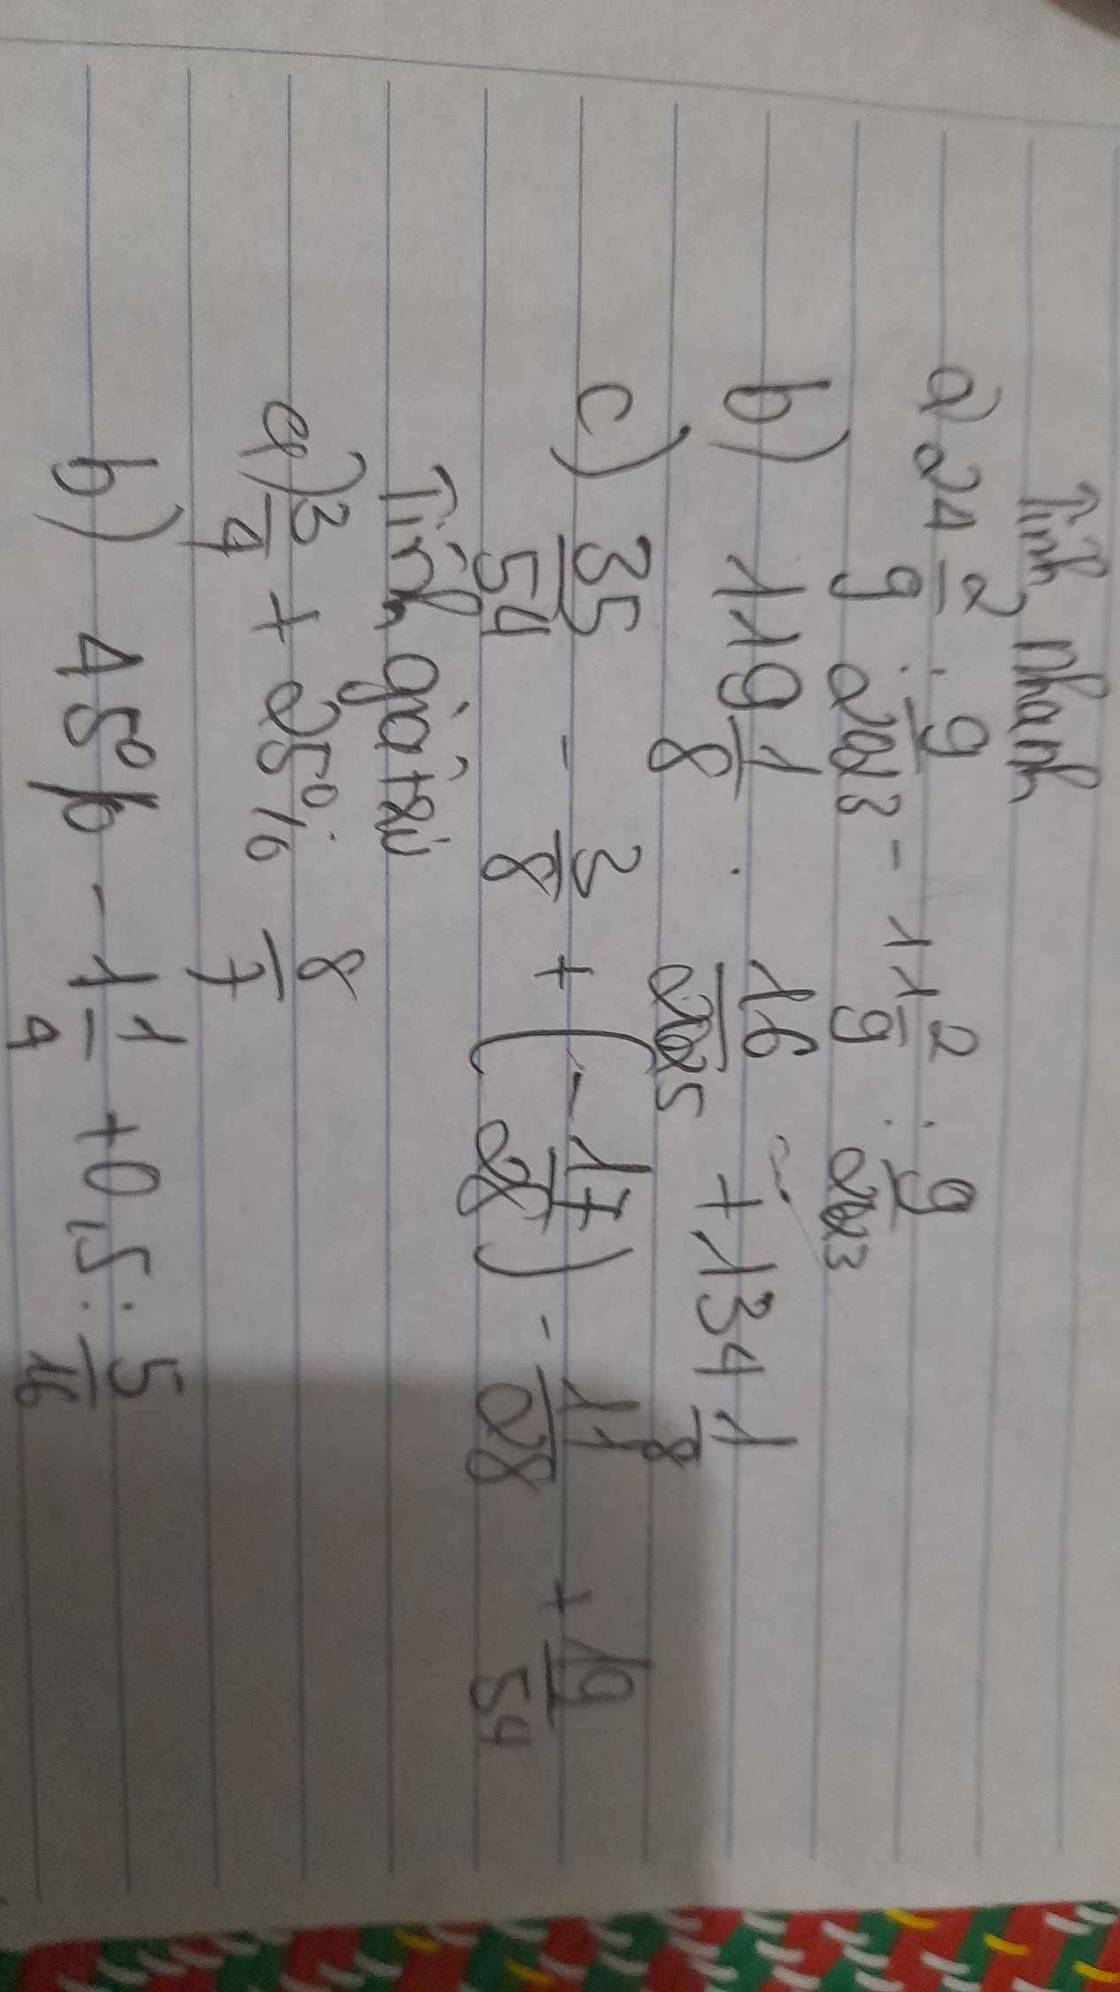 Tính nhanh
a) 24 2/9 . 9/2023 - 11 2/9 . 9/2023
b) 119 1/8 . 16/2025 + 134 1/8
c) 35/54 - 3/8 + (-17/28) - 11/28 + 19/54
Tính giá trị
a) 3/4 + 25% : 8/7
b) 45% - 1 1/4 + 0,5 : 5/16